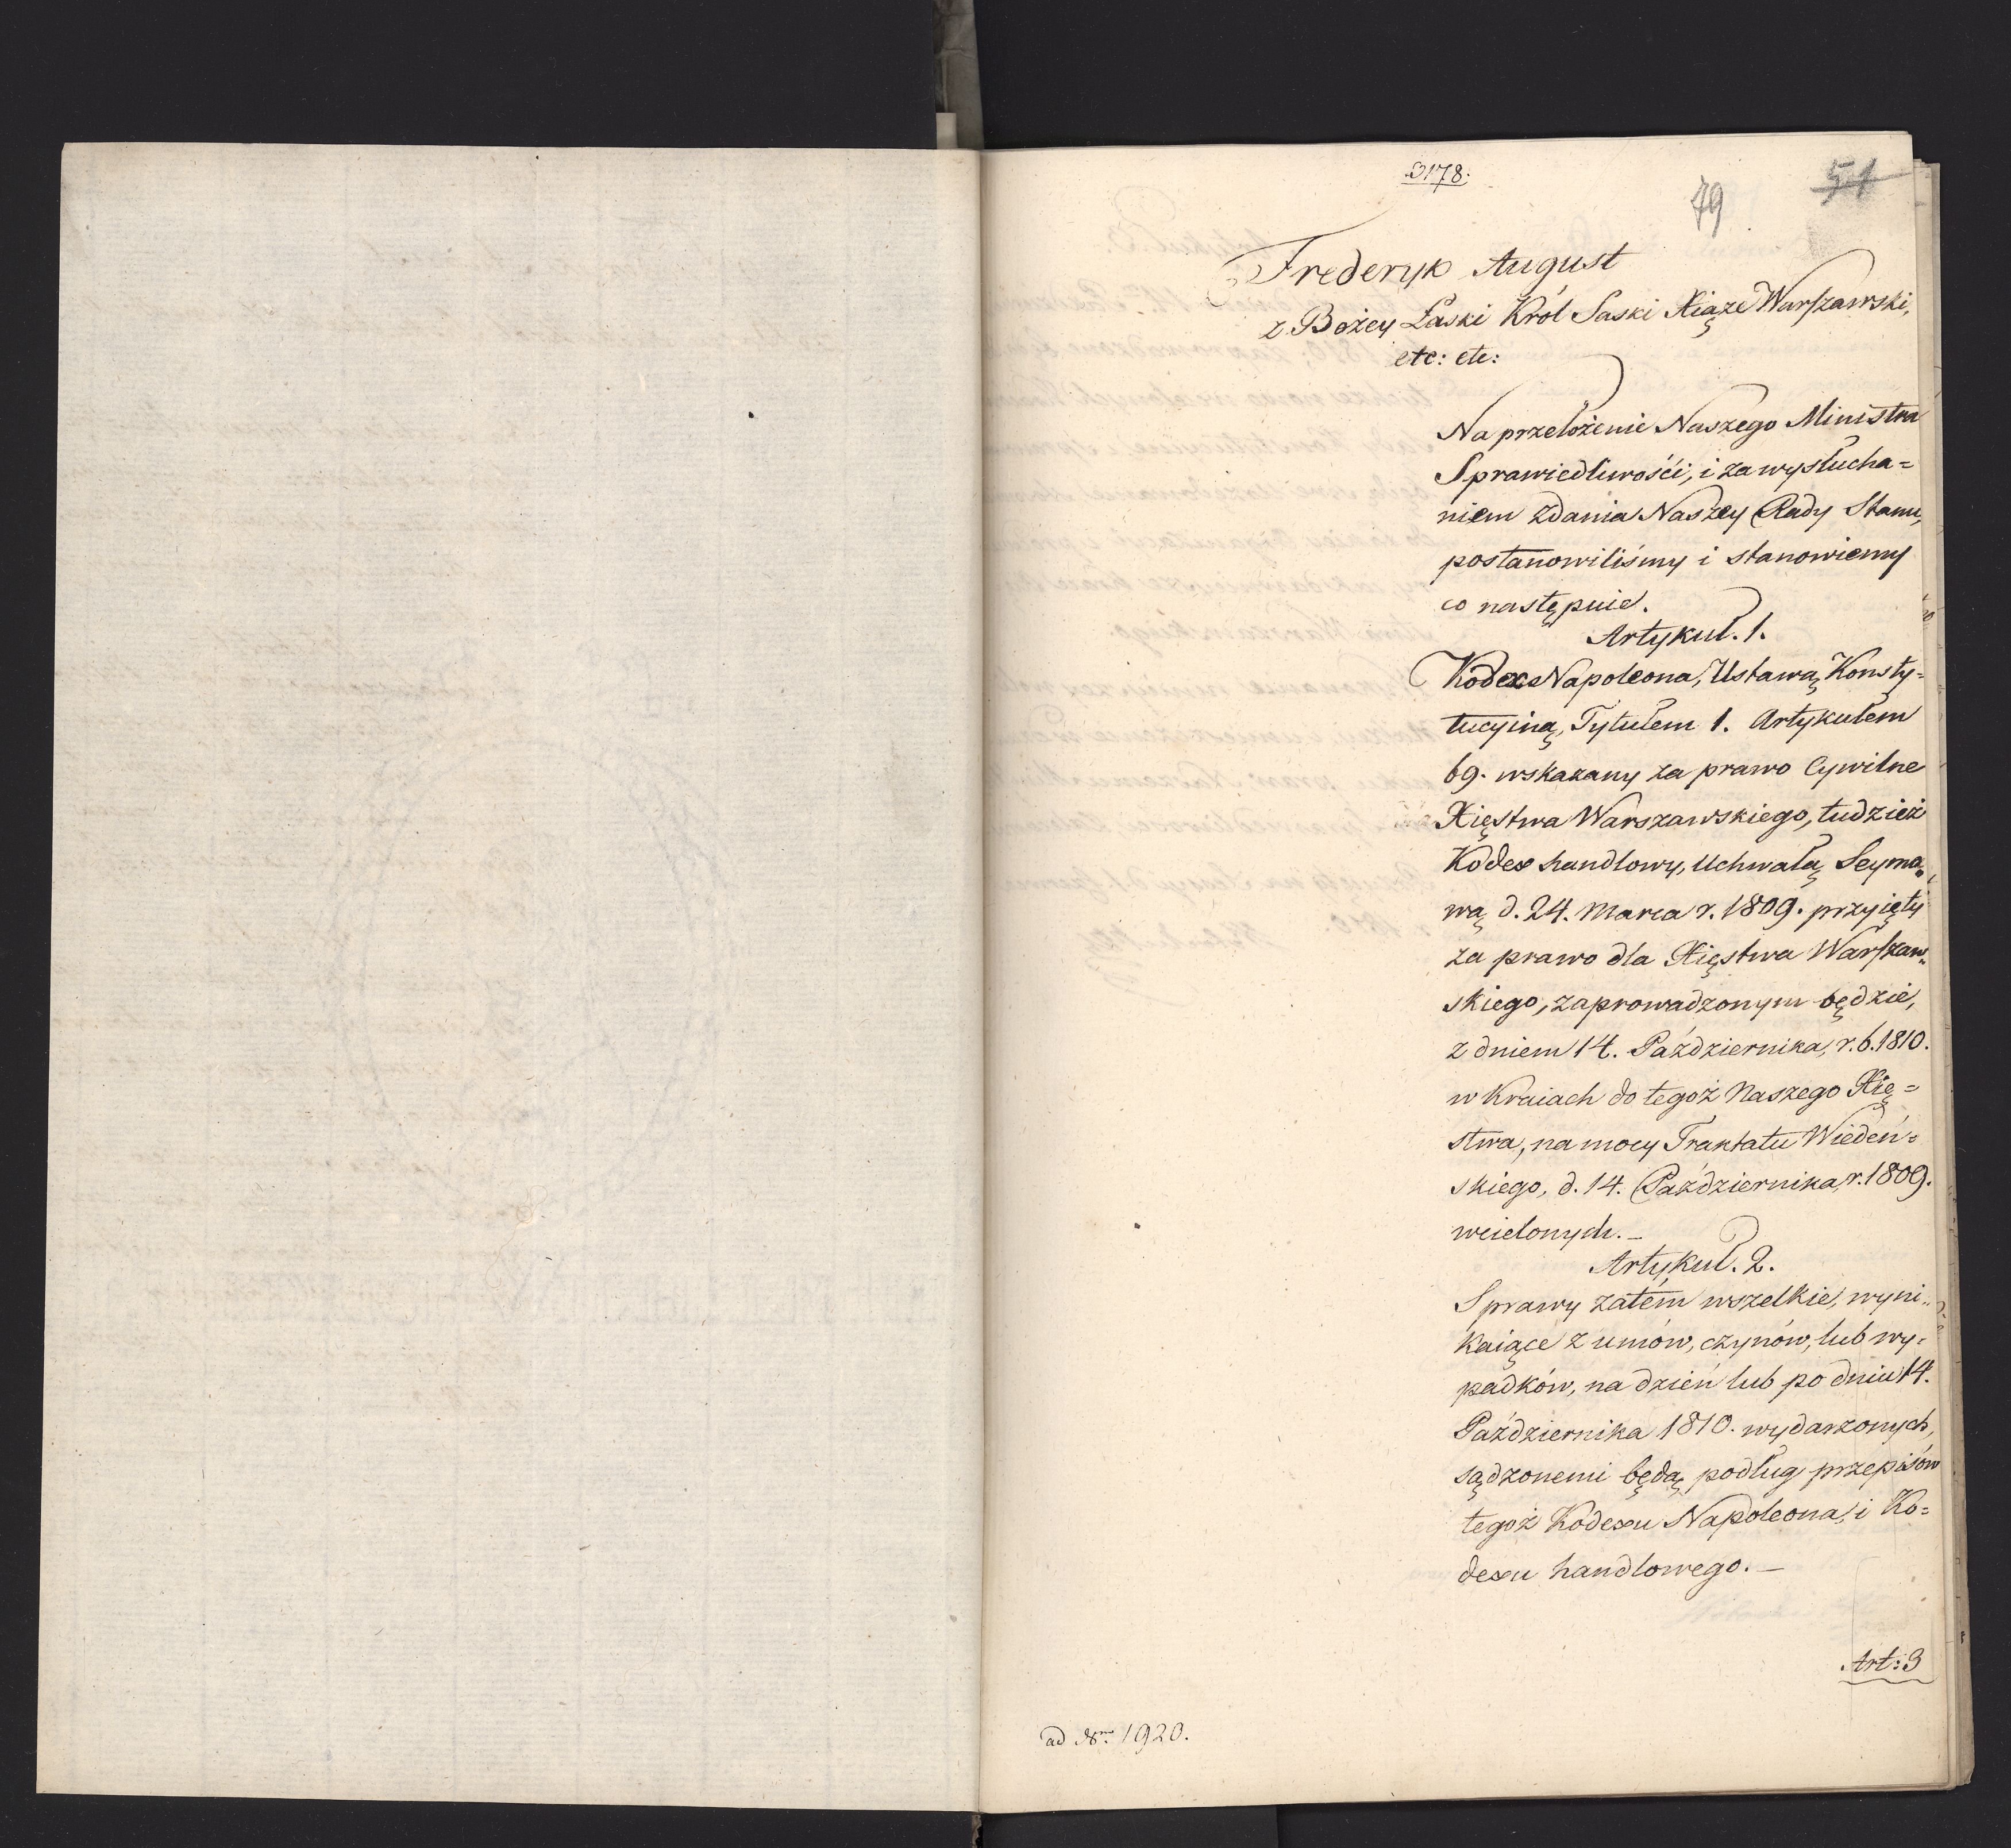 3178.
79
51
Frederyk August
z Bożey Łaski Król Saski Xiąże Warszawski,
etc: etc:
Na przełożenie Naszego Ministra
Sprawiedliwości, i za wysłucha=
niem zdania Naszey Rady Stanu,
postanowiliśmy i stanowiemy
co następuie.
Artykuł. 1.
Kodex Napoleona, Ustawą Konsty=
tucyiną, Tytułem 1. Artykułem
69. wskazany za prawo Cywilne
Xięstwa Warszawskiego, tudzież
Kodex handlowy, Uchwałą Seymo=
wą d. 24. Marca r. 1809. przyięty
za prawo dla Xięstwa Warszaw=
skiego, zaprowadzonym będzie,
z dniem 14. Października, r. b. 1810.
w Kraiach do tegoż Naszego Xię=
stwa, na mocy Traktatu Wiedeń=
skiego, d. 14. Października r. 1809.
wcielonych. —
Artykuł. 2.
Sprawy zatém wszelkie, wyni=
kaiące z umów, czynów, lub wy=
padków, na dzień lub po dniu 14.
Października 1810. wydarzonych,
sądzonemi będą podług przepisów
tegoż Kodexu Napoleona, i Ko=
dexu handlowego. —
Art: 3
ad Nrm 1920.